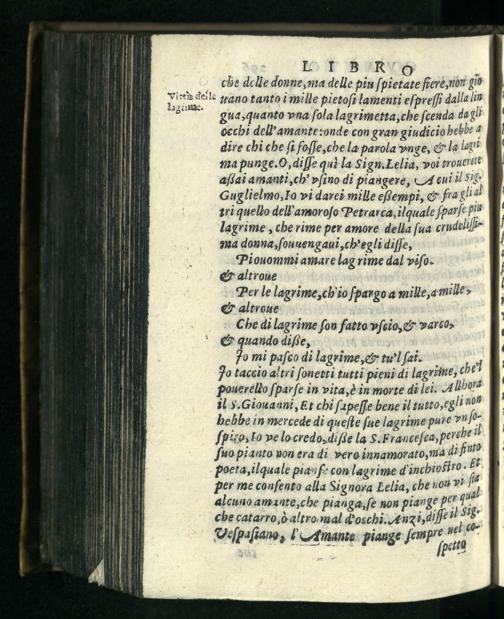 LIBRO
che delle donne, ma delle piu spietate fiere, non gio
Virtù delle
lagrime.
uano tanto i mille pietosi lamenti espressi dalla lin
gua, quanto vna sola lagrimetta, che scenda dagli
occhi dell'amante: onde con gran giudicio hebbe a
dire chi che si fosse, che la parola vnge, & la lagri
ma punge. O, disse quì la Sign. Lelia, voi trouerete
assai amanti, ch'vsino di piangere, A cui il Sig.
Guglielmo, Io vi darei mille essempi, & fra gli al
tri quello dell'amoroso Petrarca, ilquale sparse piu
lagrime, che rime per amore della sua crudelissi-
ma donna, souuengaui, ch'egli disse,
Piouommi amare lagrime dal viso.
& altroue
Per le lagrime, ch'io spargo a mille, a mille,
& altroue
Che di lagrime son fatto vscio, & varco,
& quando disse,
Io mi pasco di lagrime, & tu'l sai.
Io taccio altri sonetti tutti pieni di lagrime, che'l
pouerello sparse in vita, è in morte di lei. Allhora
il S. Giouanni, Et chi sapesse bene il tutto, egli non
hebbe in mercede di queste sue lagrime pure vn so-
spiro, Io ve lo credo, disse la S. Francesca, perche il
suo pianto non era di vero innamorato, ma di finto
poeta, ilquale pianse con lagrime d'inchiostro. Et
per me consento alla Signora Lelia, che non vi sia
alcuno amante, che pianga, se non piange per qual
che catarro, ò altro mal d'occhi. Anzi, disse il Sig.
Vespasiano, l'Amante piange sempre nel co-
spetto